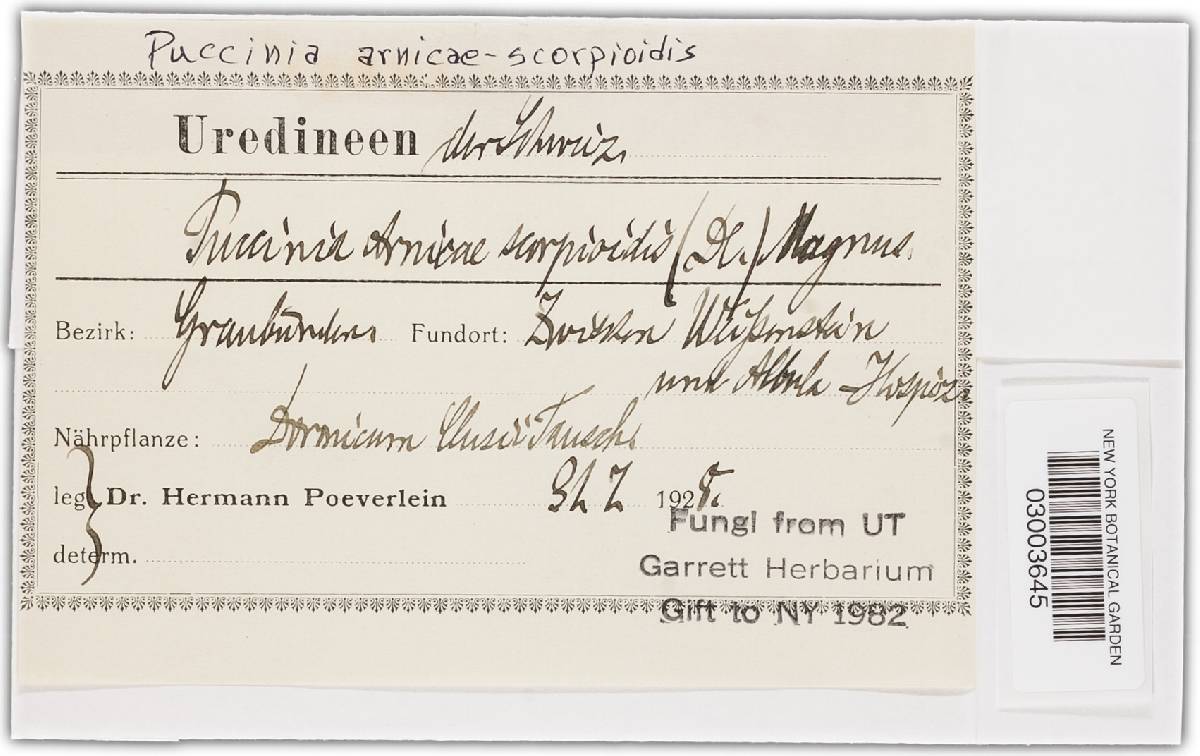 Puccinia arnicae-scorpioidis
Uredineen der Schweiz.
Puccinia Arnicae scorpioidis (DC.) Magnus.
Bezirk: Graubünden. Fundort: Zwischen Weißenstein
und Albula-Hospiz.
Nährpflanze: Doronicum Clusii Tausch.
leg. Dr. Hermann Poeverlein 192
determ.
Fungi from UT
Garrett Herbarium
Gift to NY 1982
NEW YORK BOTANICAL GARDEN
03003645